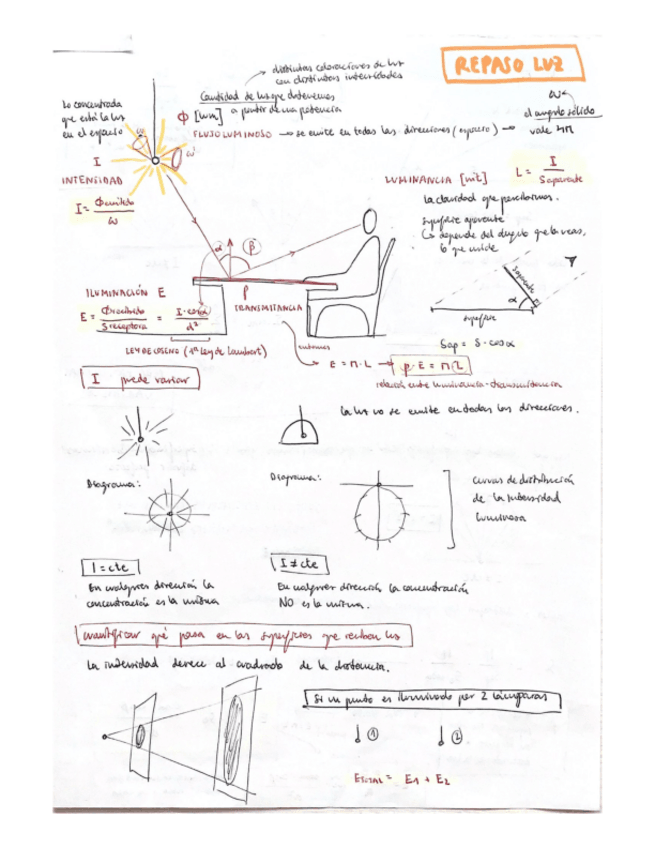 REPASO LUZ
distintas coloraciones de luz
con distintas intensidades
Cantidad de luz que obtenemos
a partir de una potencia
Φ [lum]
FLUJO LUMINOSO → se emite en todas las direcciones (espacio) →
ω
el ángulo sólido
vale 4π
lo concentrada
que está la luz
en el espacio
ω
ω
I
INTENSIDAD
I = Φemitido / ω
LUMINANCIA [nit]
L = I / Saparente
la claridad que percibimos.
superficie aparente
↳ depende del ángulo que la veas,
lo que mide
Saparente
α
superficie
Sap = S · cosα
α
β
ρ
TRANSMITANCIA
ILUMINACIÓN E
E = Φrecibido / Sreceptora = I · cosα / d²
LEY DE COSENO (1ª Ley de Lambert)
entonces
E = π · L → ρ · E = π · L
relación entre luminancia - transmitancia
I puede variar
la luz no se emite en todas las direcciones.
Diagrama:
Diagrama:
curvas de distribución
de la intensidad
luminosa
I = cte
En cualquier dirección la
concentración es la misma
I ≠ cte
En cualquier dirección la concentración
NO es la misma.
cuantificar qué pasa en las superficies que reciben luz
La intensidad decrece al cuadrado de la distancia.
Si un punto es iluminado por 2 lámparas
1
2
ETOTAL = E1 + E2